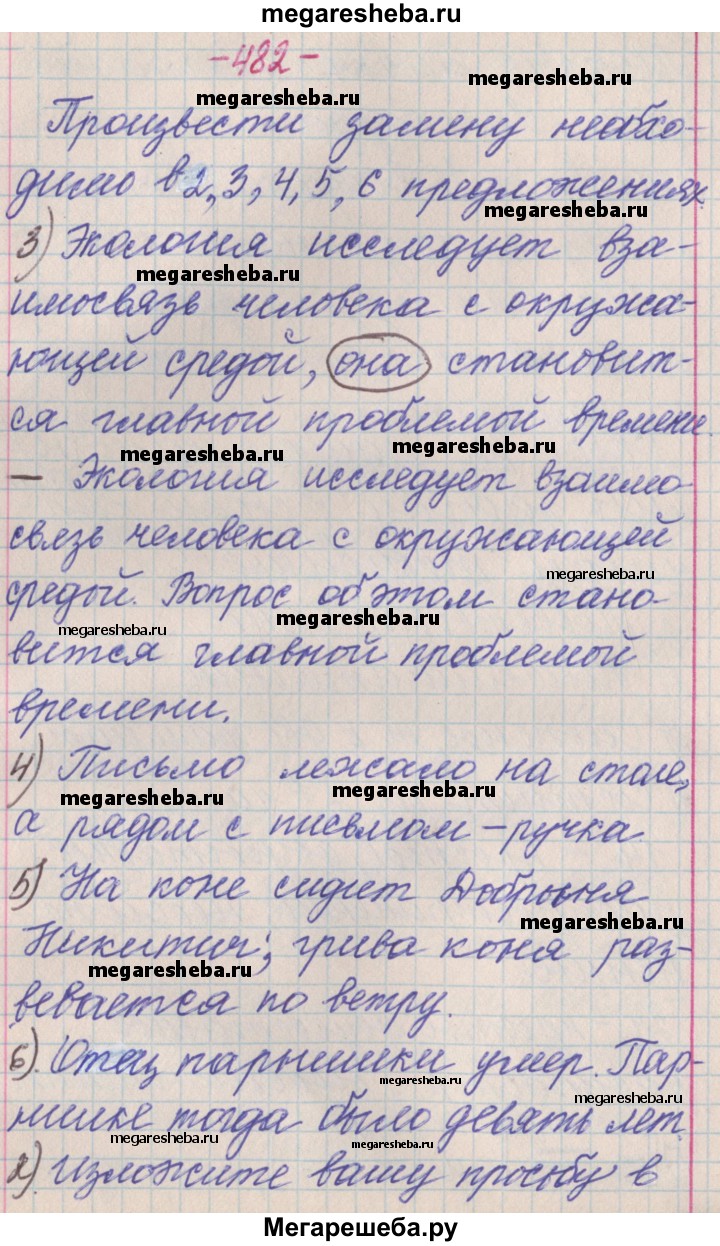 megaresheba.ru
-482-
megaresheba.ru
megaresheba.ru
Произвести замену необхо-
димо в 2, 3, 4, 5, 6 предложениях.
megaresheba.ru
3) Экология исследует вза-
megaresheba.ru
имосвязь человека с окружа-
ющей средой, она становит-
ся главной проблемой времени.
megaresheba.ru
megaresheba.ru
– Экология исследует взаимо-
связь человека с окружающей
megaresheba.ru
средой. Вопрос об этом стано-
megaresheba.ru
megaresheba.ru
вится главной проблемой
времени.
4) Письмо лежало на столе,
megaresheba.ru
megaresheba.ru
а рядом с письмом – ручка.
5) На коне сидит Добрыня
megaresheba.ru
Никитич; грива коня раз-
megaresheba.ru
вевается по ветру.
6). Отец парнишки умер. Пар-
megaresheba.ru
megaresheba.ru
нишке тогда было девять лет.
megaresheba.ru
megaresheba.ru
2). Изложите вашу просьбу в
Мегарешеба.ру